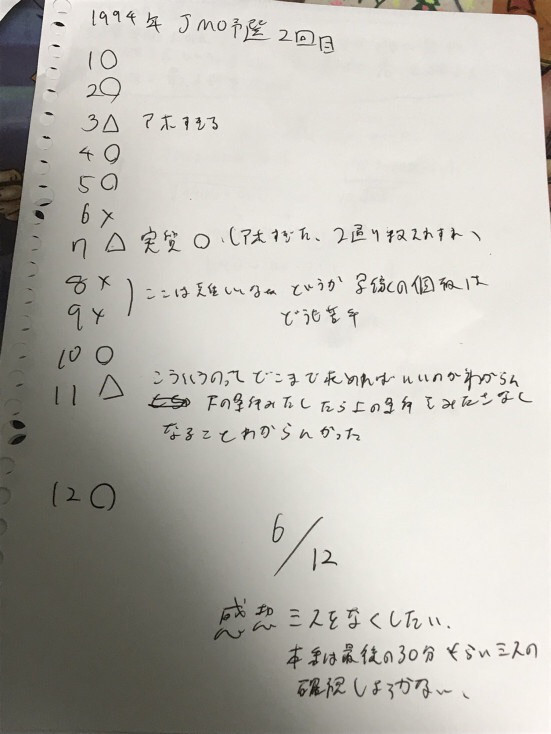 1994年 JMO予選 2回目
1○
2○
3△ アホすぎる
4○
5○
6×
7△ 実質○ (アホすぎた、2通り数えわすれ)
8× ここは というか の個数は
9× どうも苦手
10○
11△ こういうのってどこまで求めればいいのかわからん
下の条件みたしたら上の条件をみたさなく
なることわからんかった
12○
6/12
感想 ミスをなくしたい.
本番は最後の30分くらいミスの
確認しようかない、